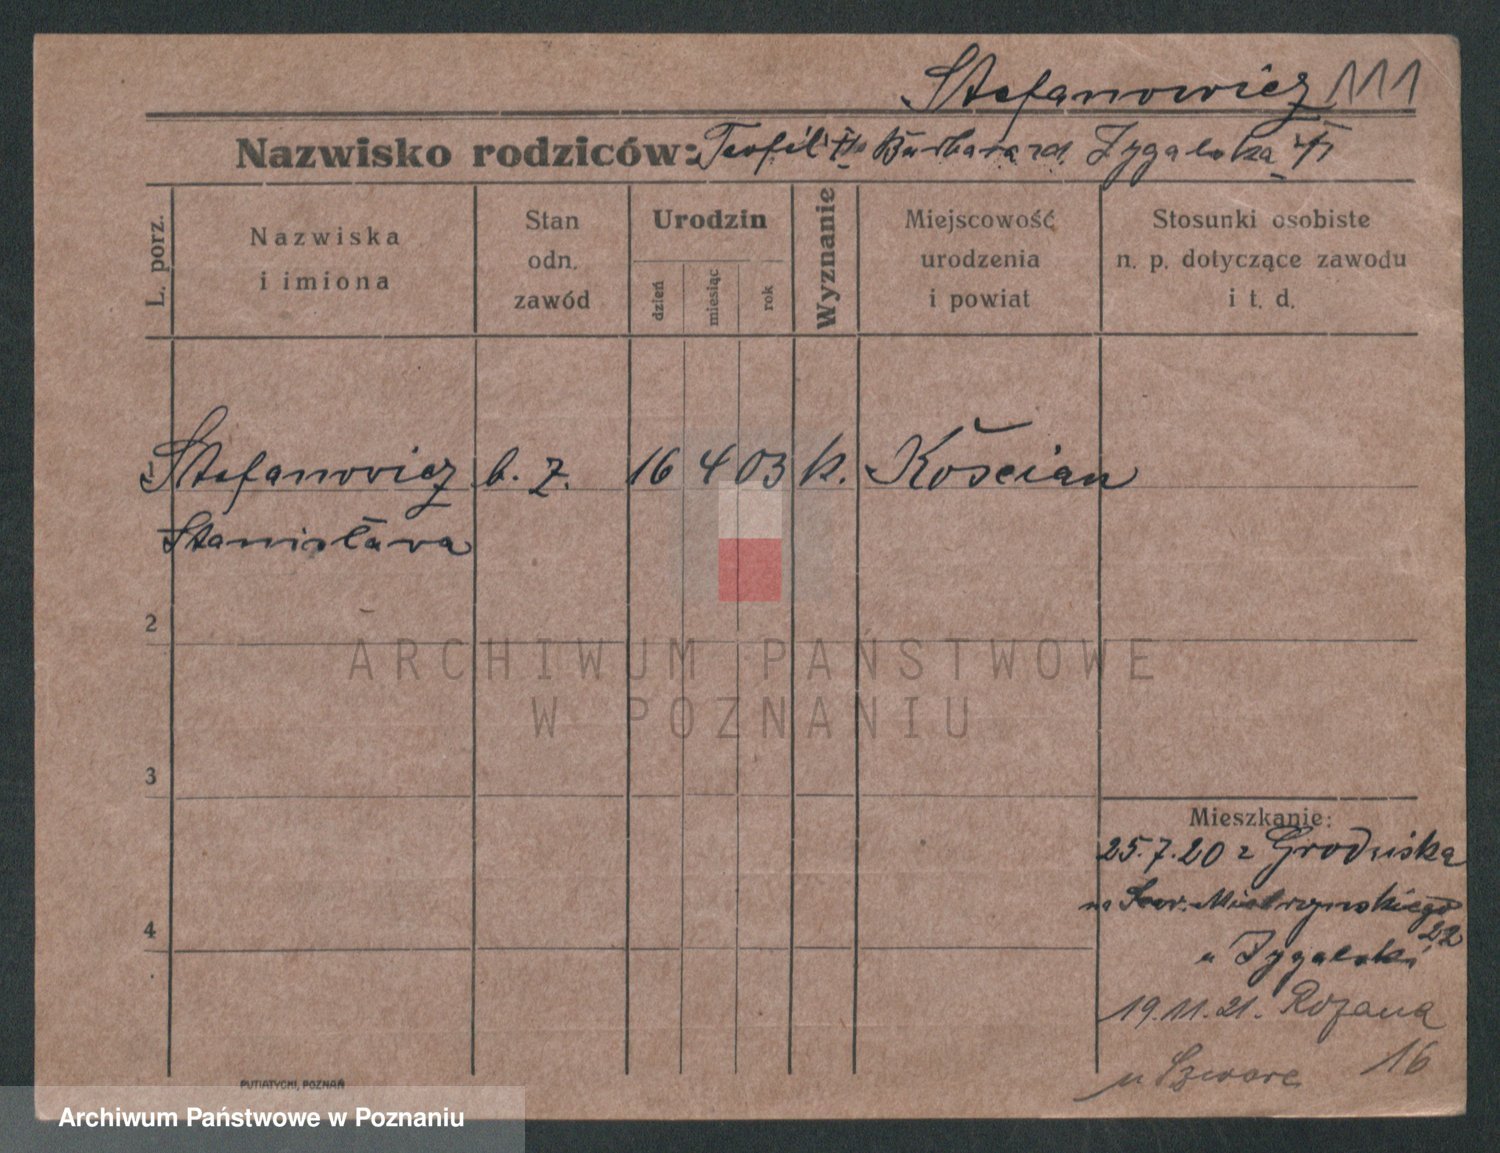 Stefanowicz 111
Nazwisko rodziców: Teofil Barbara Zygalska
L. porz.
Nazwiska
i imiona
Stan
odn.
zawód
Urodzin
dzień
miesiąc
rok
Wyznanie
Miejscowość
urodzenia
i powiat
Stosunki osobiste
n. p. dotyczące zawodu
i t. d.
Stefanowicz b. z. 16 4 03 k. Kościan
Stanisława
2
3
4
Mieszkanie:
25.7.20 z Grodziska
na Mielżyńskiego
22
u Zygalski
19.11.21. Różana
16
u Szwarc
PUTIATYCKI, POZNAŃ
ARCHIWUM PAŃSTWOWE
W POZNANIU
Archiwum Państwowe w Poznaniu